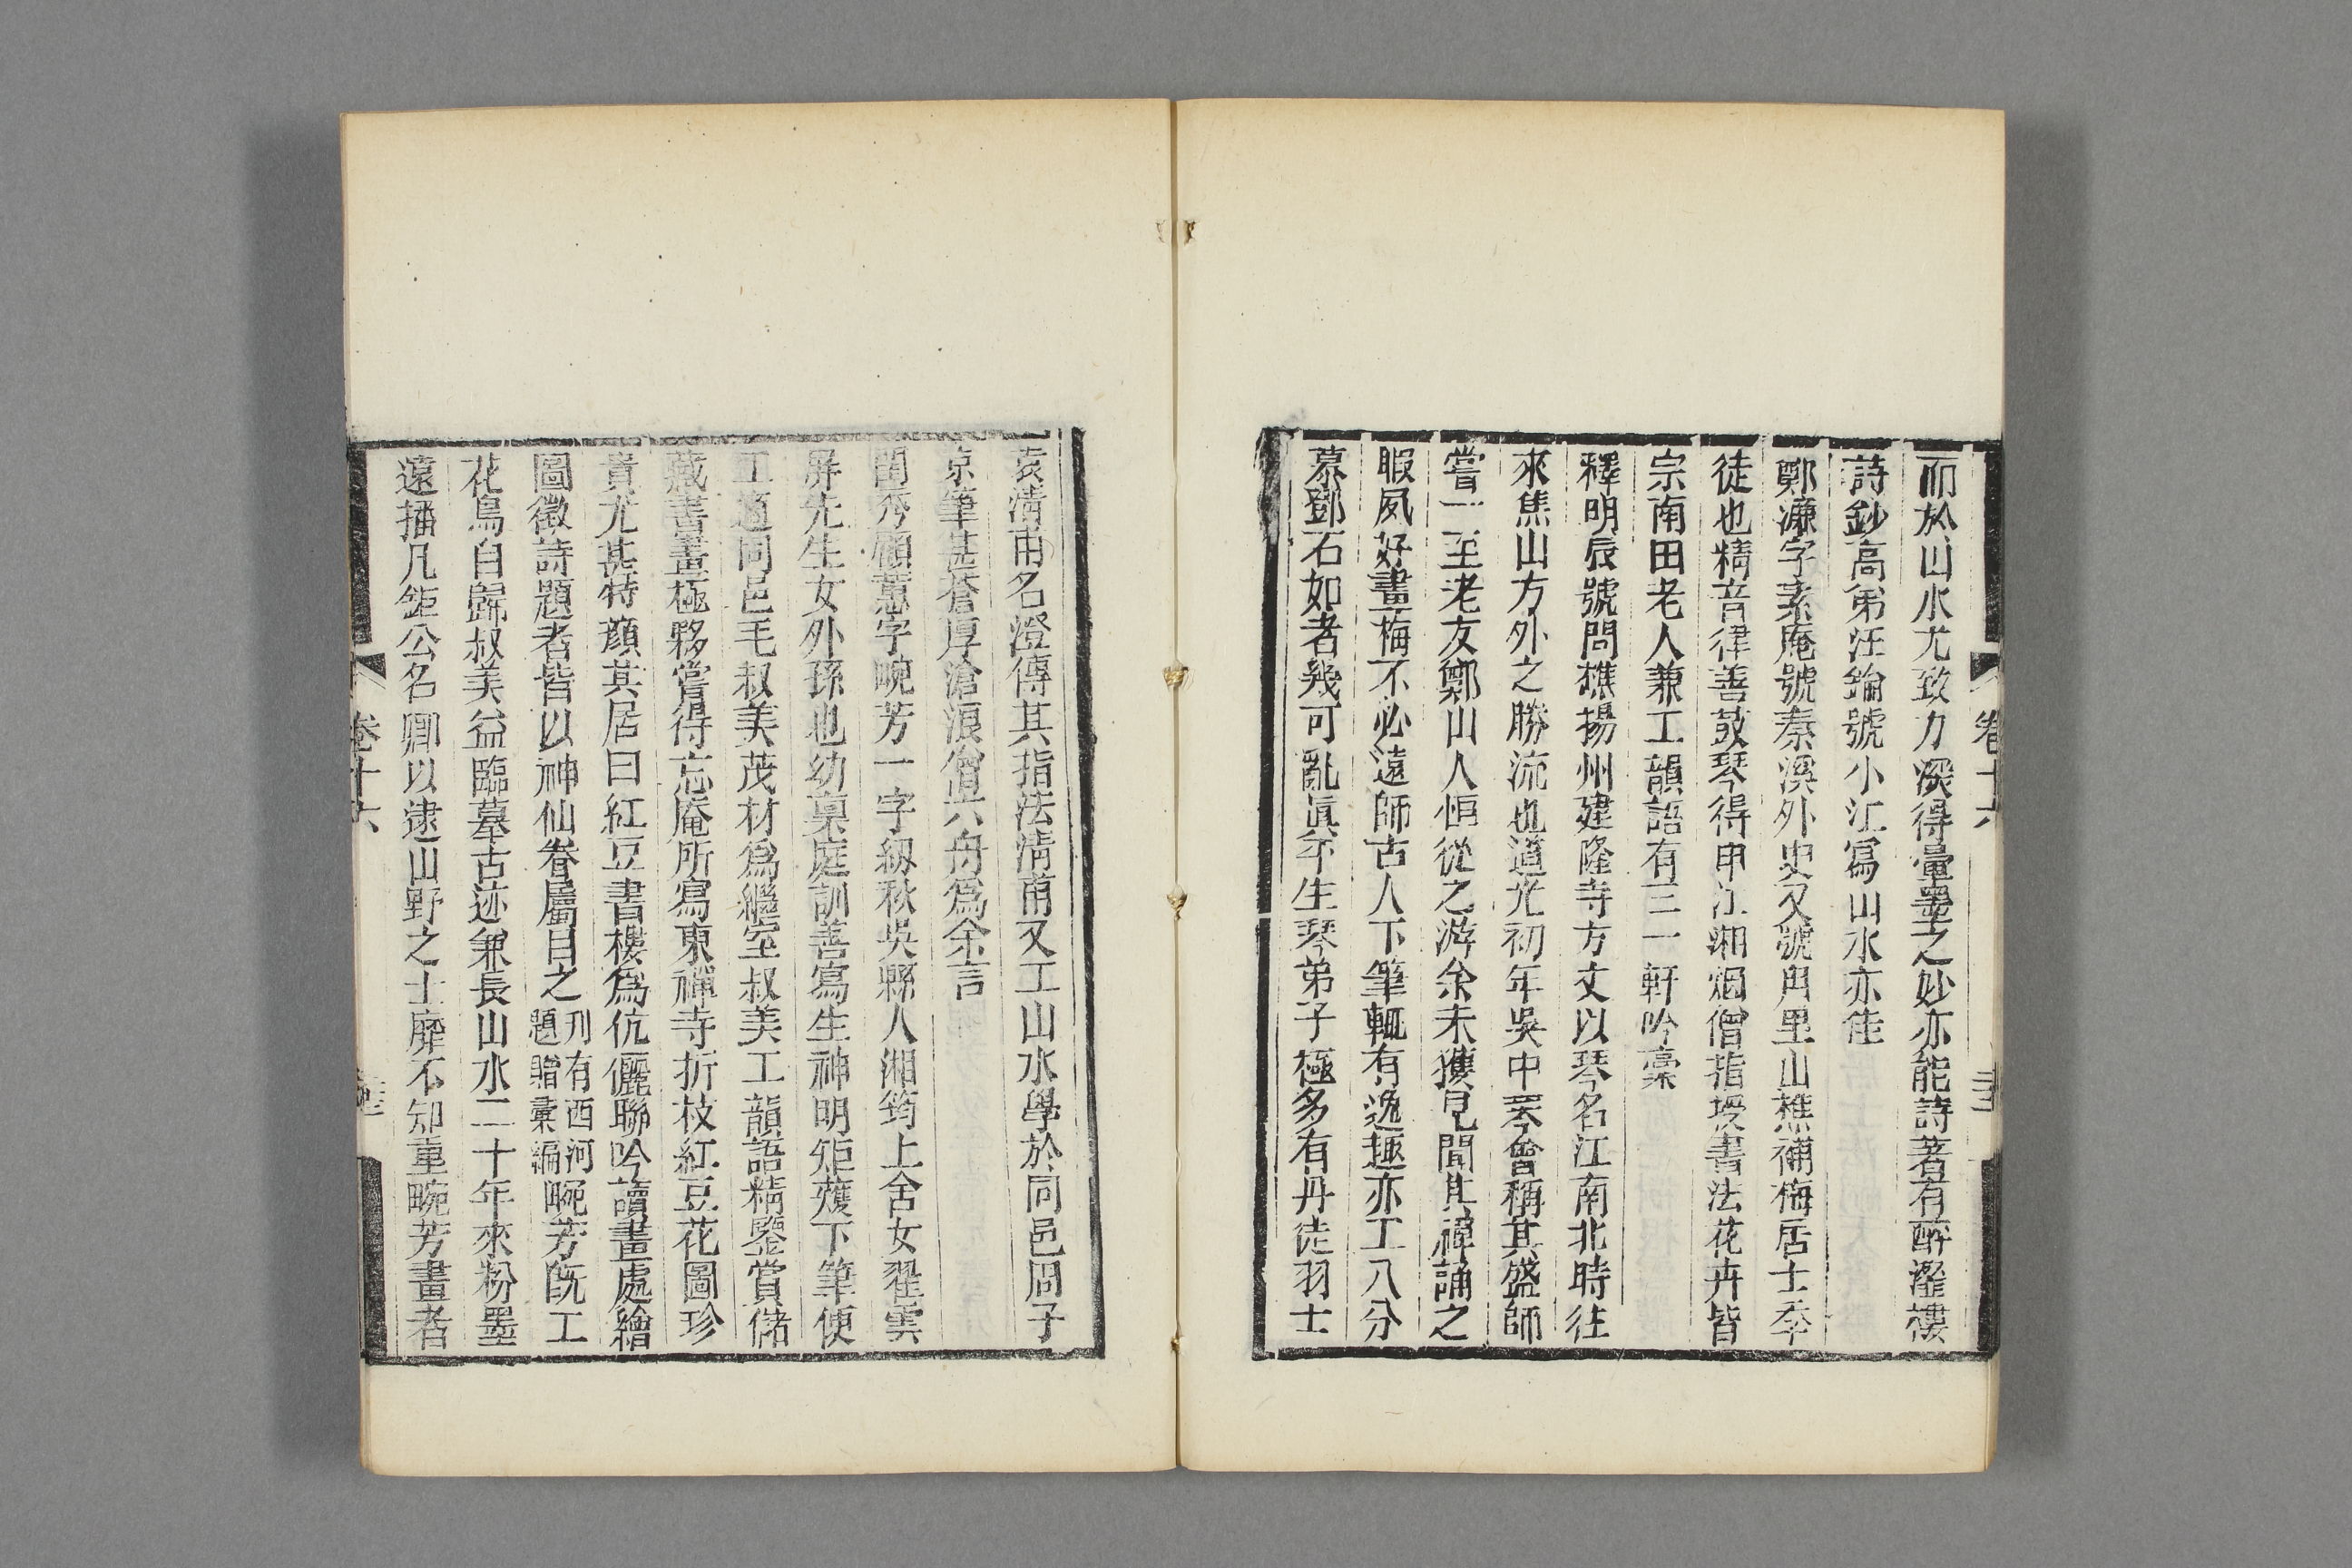 而於山水尤致力深得暈墨之妙亦能詩著有醉漚樓
詩鈔高弟汪鑰號小江寫山水亦佳
鄭濂字素庵號秦溪外史又號甪里山樵補梅居士季
徒也精音律善鼓琴得申江湘烟僧指授書法花卉皆
宗南田老人兼工韻語有三一軒吟藁
釋明辰號問樵揚州建隆寺方丈以琴名江南北時往
來焦山方外之勝流也道光初年吳中琴會稱其盛師
嘗一至老友鄭山人恒從之游余未獲見聞其禪誦之
暇夙好畫梅不必遠師古人下筆輒有逸趣亦工八分
慕鄧石如者幾可亂眞平生琴弟子極多有丹徒羽士
袁清甫名澄傳其指法清甫又工山水學於同邑周子
京筆甚蒼厚滄浪僧六舟爲余言
閨秀顧蕙字畹芳一字紉秋吳縣人湘筠上舍女翟雲
屏先生女外孫也幼稟庭訓善寫生神明矩矱下筆便
工適同邑毛叔美茂材爲繼室叔美工韻語精鑒賞儲
藏書畫極夥嘗得忘庵所寫東禪寺折枝紅豆花圖珍
賞尤甚特顏其居曰紅豆書樓爲伉儷聯吟讀畫處繪
圖徵詩題者皆以神仙眷屬目之刋有西河題贈彙編畹芳旣工
花鳥自歸叔美益臨摹古迹兼長山水二十年來粉墨
遠播凡鉅公名卿以逮山野之士靡不知重畹芳畫者
卷十六